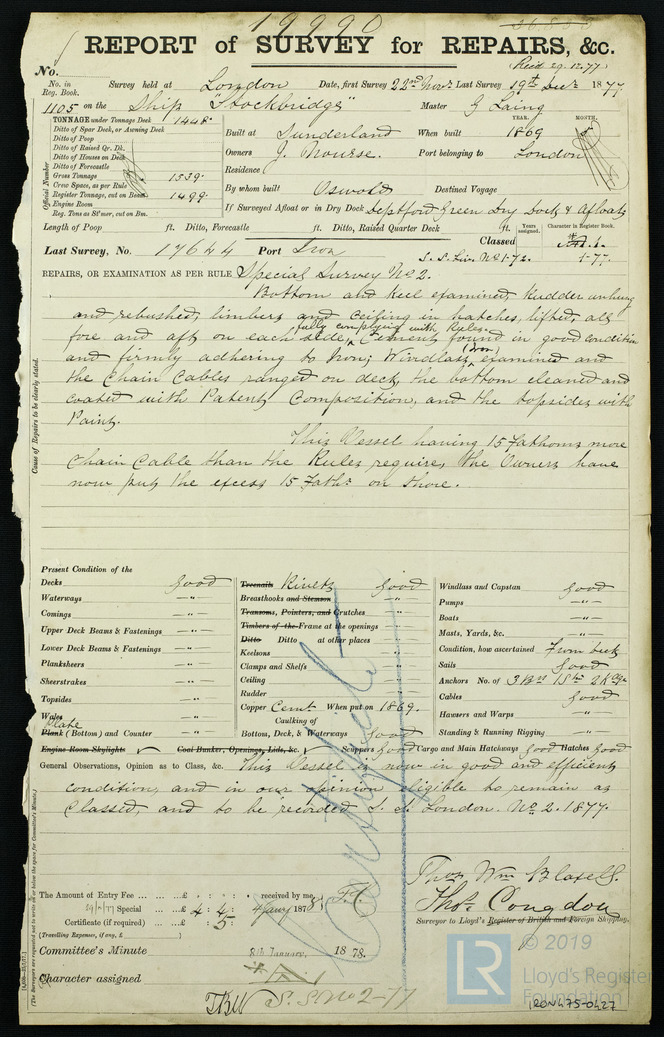 19990
REPORT of SURVEY for REPAIRS, &c.
(Recd 29.12.77)
No.
No. in Reg. Book. Survey held at London Date, first Survey 22nd Novr Last Survey 19th Decr 1877
1105 on the Ship "Stockbridge" Master G Laing
TONNAGE under Tonnage Deck 1448
Ditto of Spar Deck, or Awning Deck
Ditto of Poop
Ditto of Raised Qr. Dk.
Ditto of Houses on Deck
Ditto of Forecastle
Gross Tonnage 1539
Crew Space, as per Rule
Register Tonnage, cut on Beam 1499
Engine Room
Reg. Tons as St'mer, cut on Bm.
Official Number
YEAR. MONTH.
Built at Sunderland When built 1869
Owners J. Nourse. Port belonging to London
Residence
By whom built Oswald Destined Voyage
If Surveyed Afloat or in Dry Dock Deptford Green Dry Dock & Afloat
Length of Poop ft. Ditto, Forecastle ft. Ditto, Raised Quarter Deck ft.
Years assigned. Character in Register Book.
Last Survey, No. 17644 Port Iron Classed
S. S. Liv. No 1-72. 1-77.
REPAIRS, OR EXAMINATION AS PER RULE Special Survey No 2.
Bottom and keel examined, Rudder unhung
and rebushed, limbers and ceiling in hatches, lifted, all
fore and aft on each side, fully complying with Rules. Cement found in good condition
and firmly adhering to Iron; Windlass (Iron) examined and
the Chain Cables ranged on deck, the bottom cleaned and
coated with Patent Composition, and the topsides with
Paint.
This Vessel having 15 fathoms more
Chain Cable than the Rules require, the Owners have
now put the excess 15 Faths on shore.
Cause of Repairs to be clearly stated.
Present Condition of the
Decks good
Waterways "
Comings "
Upper Deck Beams & Fastenings "
Lower Deck Beams & Fastenings "
Planksheers "
Sheerstrakes "
Topsides "
Wales "
Plate
Plank (Bottom) and Counter "
Treenails Rivets good
Breasthooks and Stemson "
Transoms, Pointers, and Crutches "
Timbers of the Frame at the openings "
Ditto Ditto at other places "
Keelsons "
Clamps and Shelfs "
Ceiling "
Rudder "
Copper Cemt When put on 1869.
Caulking of
Bottoms, Deck, & Waterways good
Windlass and Capstan good
Pumps "
Boats "
Masts, Yards, &c. "
Condition, how ascertained From deck
Sails good
Anchors No. of 3 Brs 1 Stm 2 Kdgs.
Cables good
Hawsers and Warps "
Standing & Running Rigging "
Engine Room Skylights Coal Bunker, Openings, Lids, &c. Scuppers good Cargo and Main Hatchways good Hatches good
General Observations, Opinion as to Class, &c. This Vessel is now in good and efficient
condition, and in our opinion eligible to remain as
Classed, and to be recorded S. S. London. No 2. 1877.
Certificate
Thos Wm Blaxell.
Thos Congdon
Surveyor to Lloyd's Register of British and Foreign Shipping.
The Amount of Entry Fee £ : : received by me,
Special £ 4 : 4 : 187
Certificate (if required) £ : 5 :
(Travelling Expenses, if any, £ )
Committee's Minute 8th January, 1878.
Character assigned
S. S. No 2-77
© 2019
LR
Lloyd's Register
Foundation
IRON475-0427